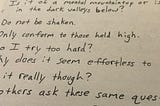 Is it of a mental mountaintop or is
in the dark valleys below?
Do not be shaken.
Only conform to those held high.
Do I try too hard?
Why does it seem effortless to
it really though?
others ask these same ques